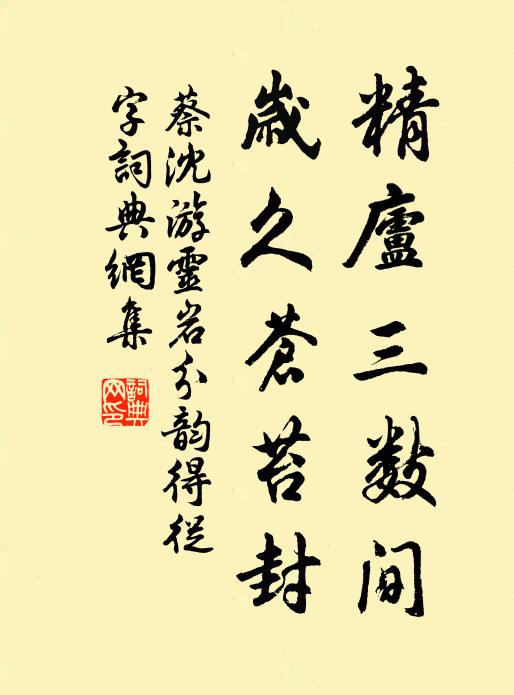 精廬三数间
歲久蒼苔封
蔡沈游靈岩分韵得從
字詞典網集
詞典
网印